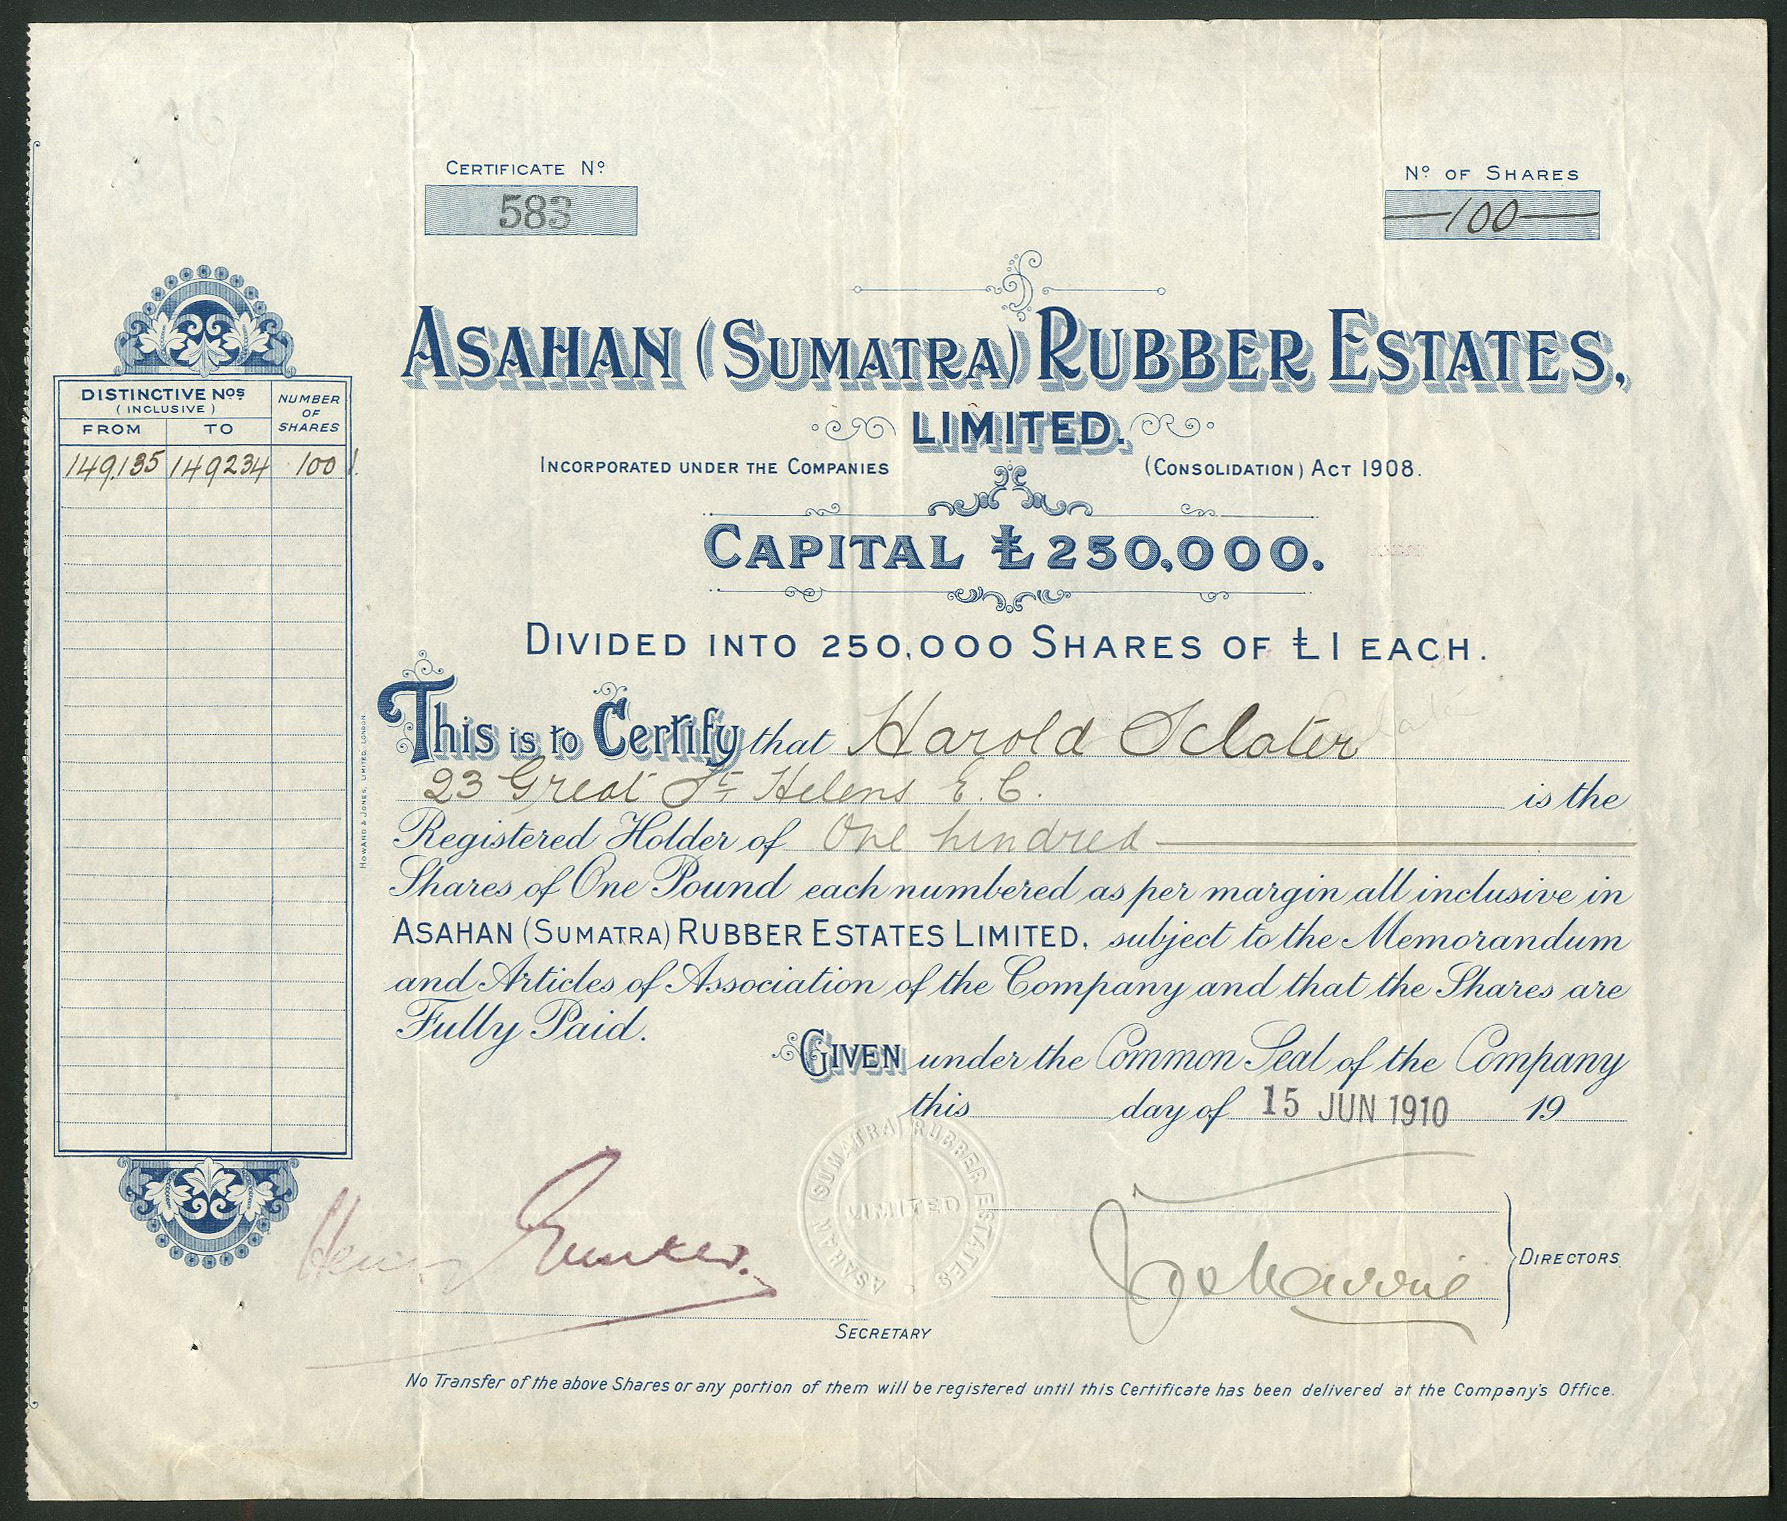 CERTIFICATE Nº
583
Nº OF SHARES
100
ASAHAN (SUMATRA) RUBBER ESTATES,
LIMITED.
INCORPORATED UNDER THE COMPANIES (CONSOLIDATION) ACT 1908.
CAPITAL £250,000.
DIVIDED INTO 250,000 SHARES OF £1 EACH.
DISTINCTIVE Nos
(INCLUSIVE)
NUMBER OF SHARES
FROM TO
149,135 149234 100
This is to Certify that Harold Sclater
23 Great St Helens E.C. is the
Registered Holder of One hundred
Shares of One Pound each numbered as per margin all inclusive in
ASAHAN (SUMATRA) RUBBER ESTATES LIMITED, subject to the Memorandum
and Articles of Association of the Company and that the Shares are
Fully Paid.
GIVEN under the Common Seal of the Company
this day of 15 JUN 1910 19
ASAHAN (SUMATRA) RUBBER ESTATES
LIMITED
Henry
DIRECTORS
SECRETARY
No Transfer of the above Shares or any portion of them will be registered until this Certificate has been delivered at the Company's Office.
HOWARD & JONES, LIMITED, LONDON.